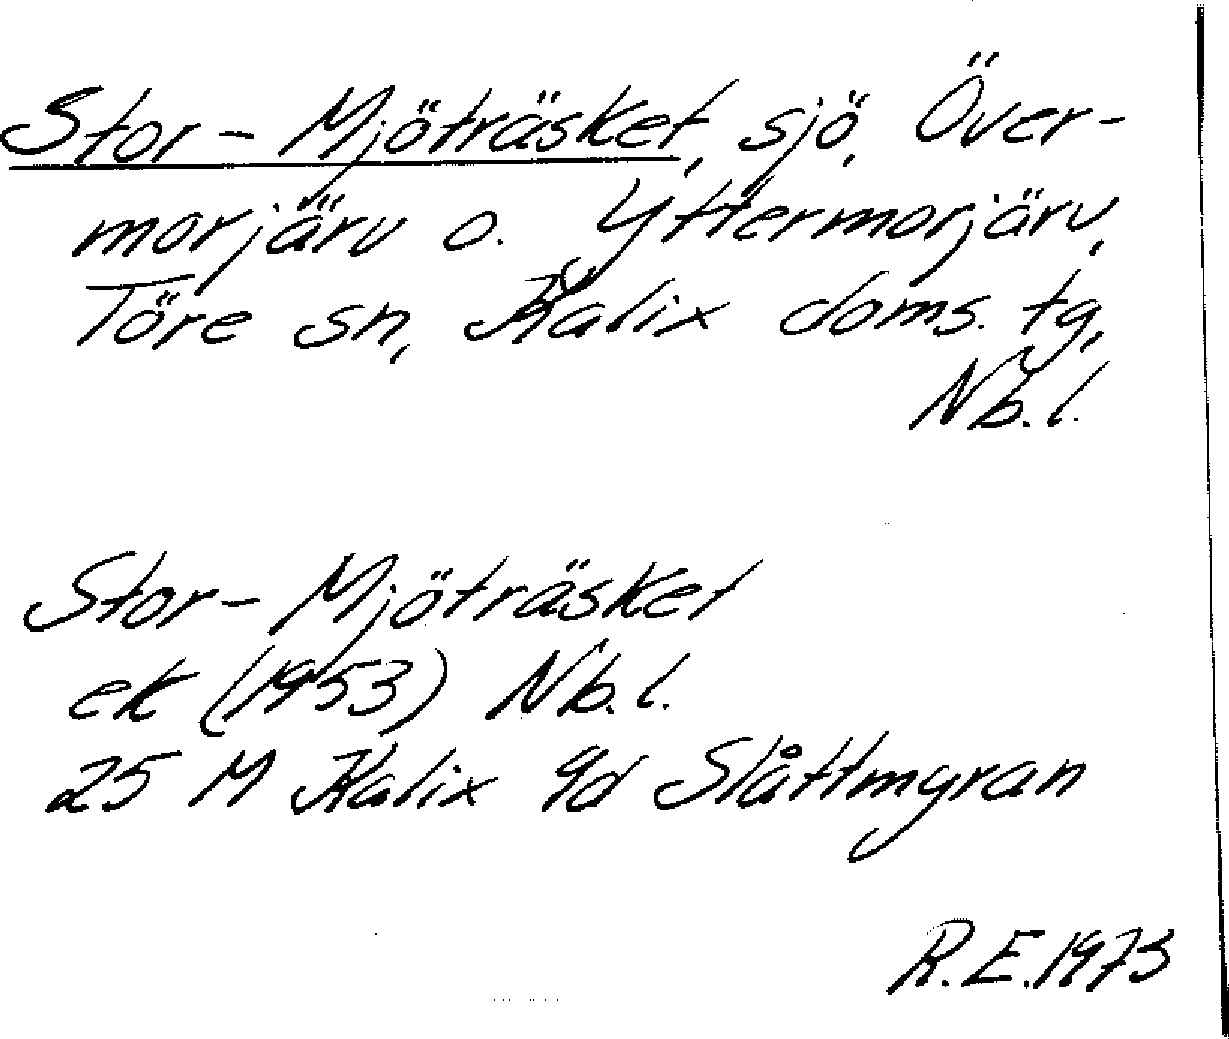 Stor-Mjöträsket, sjö, Över-
morjärv o. Yttermorjärv,
Töre sn, Kalix doms. tg,
Nb.l.
Stor-Mjöträsket
ek (1953) Nb.l.
25 M Kalix 9d Slåttmyran
R.E.1973